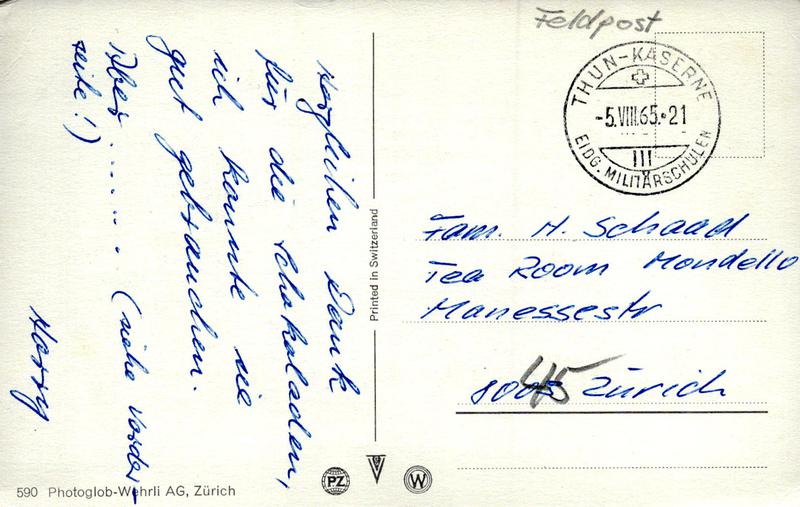 Feldpost
THUN-KASERNE
-5.VIII.65.-21
III
EIDG. MILITÄRSCHULEN
Herzlichen Dank
für die Schokoladen,
ich konnte sie
gut gebrauchen.
Aber ...... (siehe Vorder-
seite!)
Harry
Printed in Switzerland
Fam. H. Schaad
Tea Room Mondello
Manessestr
8045 Zürich
590 Photoglob-Wehrli AG, Zürich
PZ
W